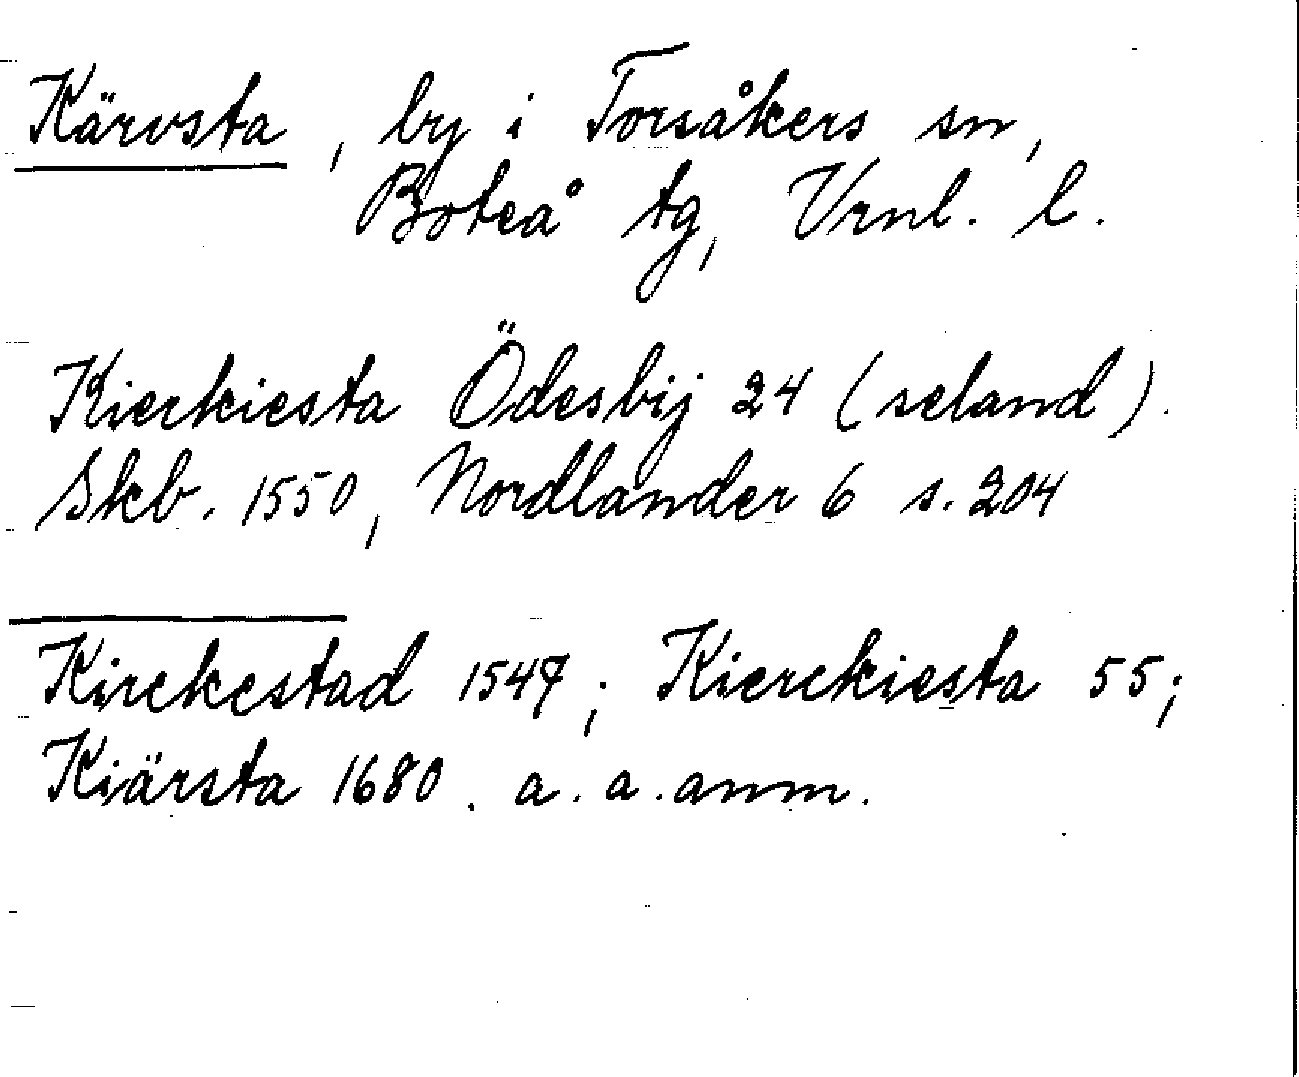 Kärvsta, by i Torsåkers sn,
Boteå tg, Vrnl. l.
Kierkiesta Ödesbij 24 (seland).
Skb. 1550, Nordlander 6 s. 204
Kirckestad 1547; Kierckiesta 55;
Kiärsta 1680. a. a. anm.